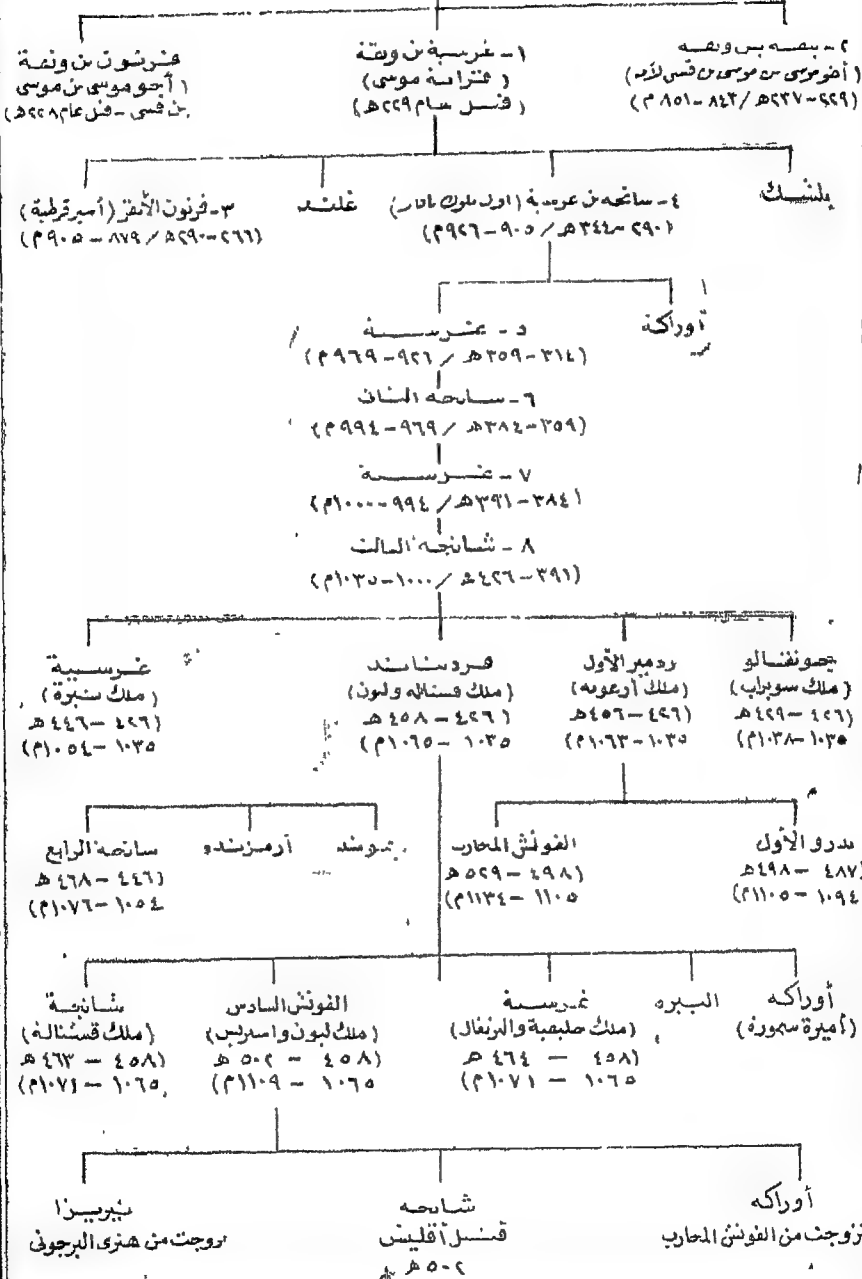 ٢ - ينقه بن ونقه
(أخو موسى بن موسى بن قسى لأمه)
(٢٢٩-٢٣٧هـ/ ٨٤٣-٨٥١ م)
١ - غرسية بن ونقة
(قرابة موسى)
(قتل عام ٢٢٩هـ)
فرتون بن ونقة
(أخو موسى بن موسى
بن قسى - قتل عام ٢٢٨هـ)
بلشك
٤ - سانجه بن غرسية (اول ملوك نافار)
(٢٩٠-٣٤٤هـ/ ٩٠٥-٩٢٦م)
غلند
٣ - فرتون الأنقر (أسير قرطبة)
(٢٦٦-٢٩٠هـ/ ٨٧٩-٩٠٥م)
أوراكة
٥ - غرسية
(٣١٤-٣٥٩هـ/ ٩٢٦-٩٦٩م)
٦ - سانجه الثانى
(٣٥٩-٣٨٤هـ/ ٩٦٩-٩٩٤م)
٧ - غرسية
(٣٨٤-٣٩١هـ/ ٩٩٤-١٠٠٠م)
٨ - شانجه الثالث
(٣٩١-٤٢٦هـ/ ١٠٠٠-١٠٣٥م)
جونفالو
(ملك سوبراب)
(٤٢٦-٤٢٩هـ
١٠٣٥-١٠٣٨م)
ردمير الأول
(ملك أرغونه)
(٤٢٦-٤٥٦هـ
١٠٣٥-١٠٦٣م)
فردناند
(ملك قستاله وليون)
(٤٢٦-٤٥٨هـ
١٠٣٥-١٠٦٥م)
غرسية
(ملك نبرة)
(٤٢٦-٤٤٦هـ
١٠٣٥-١٠٥٤م)
بدرو الأول
(٤٨٧-٤٩٨هـ
١٠٩٤-١١٠٥م)
الفونش المحارب
(٤٩٨-٥٢٩هـ
١١٠٥-١١٣٤م)
يموند
أرمزندو
سانجه الرابع
(٤٤٦-٤٦٨هـ
١٠٥٤-١٠٧٦م)
أوراكه
(أميرة سمورة)
البيره
غرسية
(ملك جليقية والبرتغال)
(٤٥٨-٤٦٤هـ
١٠٦٥-١٠٧١م)
الفونش السادس
(ملك ليون واستريس)
(٤٥٨-٥٠٢هـ
١٠٦٥-١١٠٩م)
شانجة
(ملك قستاله)
(٤٥٨-٤٦٣هـ
١٠٦٥-١٠٧١م)
أوراكه
تزوجت من الفونش المحارب
شانجه
قتيل أقليش
٥٠٢هـ
تيريزا
تزوجت من هنرى البرجونى